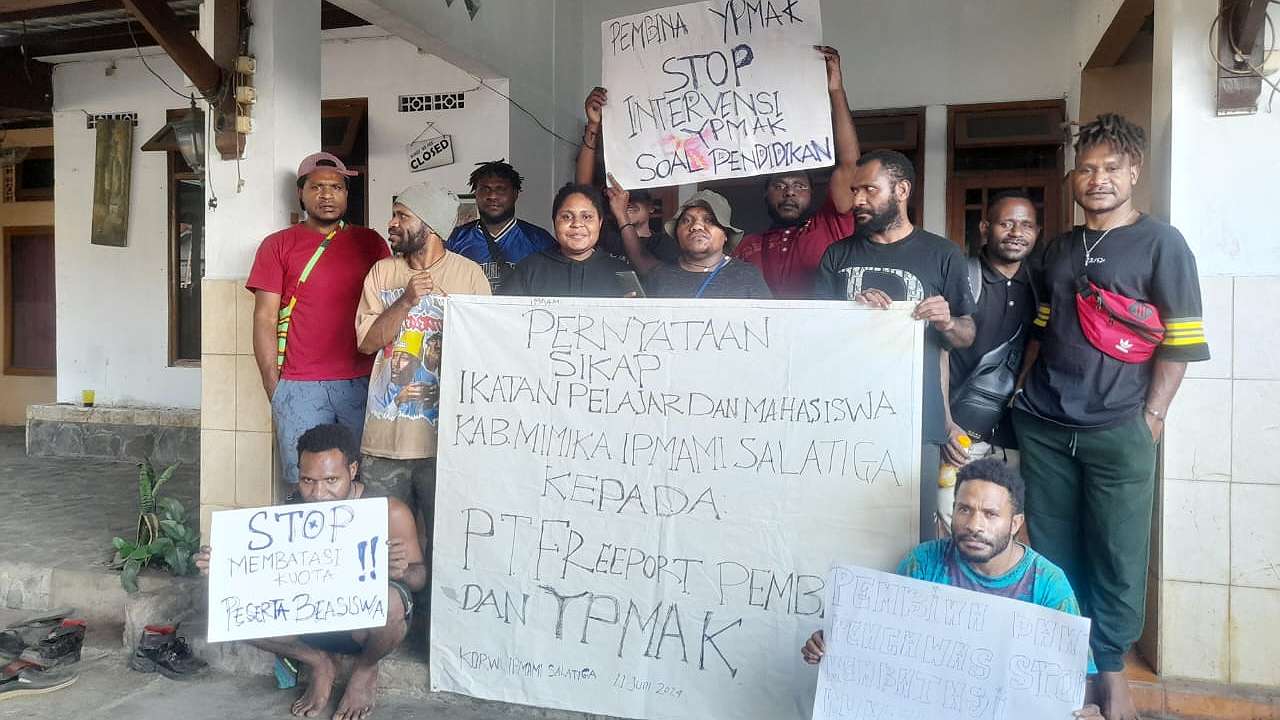 PEMBINA YPMAK
STOP
INTERVENSI
YPMAK
SOAL PENDIDIKAN
CLOSED
PERNYATAAN
SIKAP
IKATAN PELAJAR DAN MAHASISWA
KAB.MIMIKA IPMAMI SALATIGA
KEPADA:
PT FREEPORT PEMB
DAN YPMAK
KORWIL IPMAMI SALATIGA 11 JUNI 2024
STOP
MEMBATASI
KUOTA !!
PESERTA BEASISWA
PEMBINA DAN
STOP